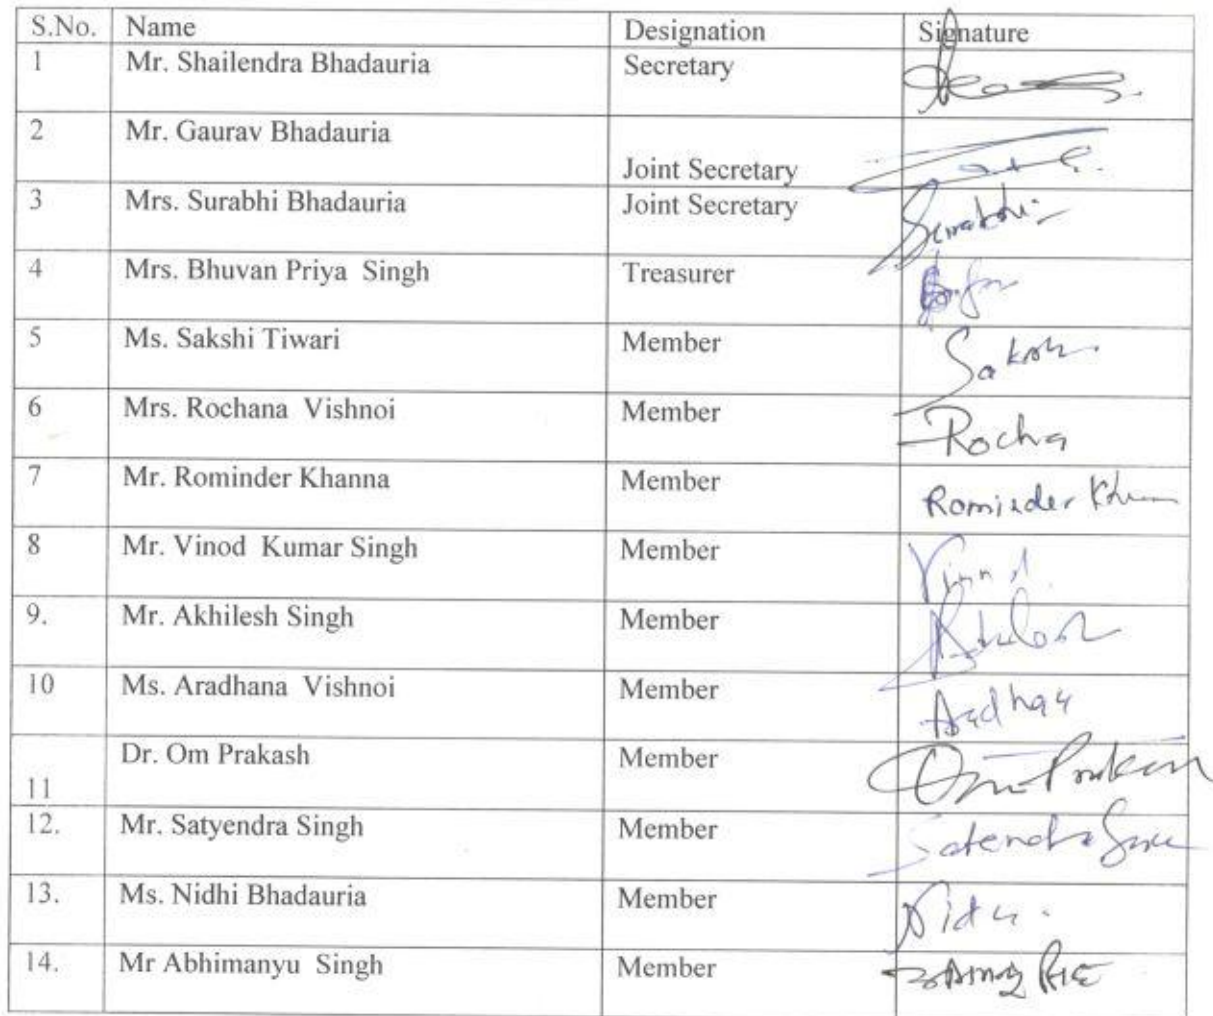 S.No. Name Designation Signature
1 Mr. Shailendra Bhadauria Secretary
2 Mr. Gaurav Bhadauria Joint Secretary
3 Mrs. Surabhi Bhadauria Joint Secretary Surabhi
4 Mrs. Bhuvan Priya Singh Treasurer
5 Ms. Sakshi Tiwari Member Sakshi
6 Mrs. Rochana Vishnoi Member Rocha
7 Mr. Rominder Khanna Member Rominder
8 Mr. Vinod Kumar Singh Member Vinod
9. Mr. Akhilesh Singh Member
10 Ms. Aradhana Vishnoi Member
11 Dr. Om Prakash Member Om Prakash
12. Mr. Satyendra Singh Member Satendra
13. Ms. Nidhi Bhadauria Member
14. Mr Abhimanyu Singh Member